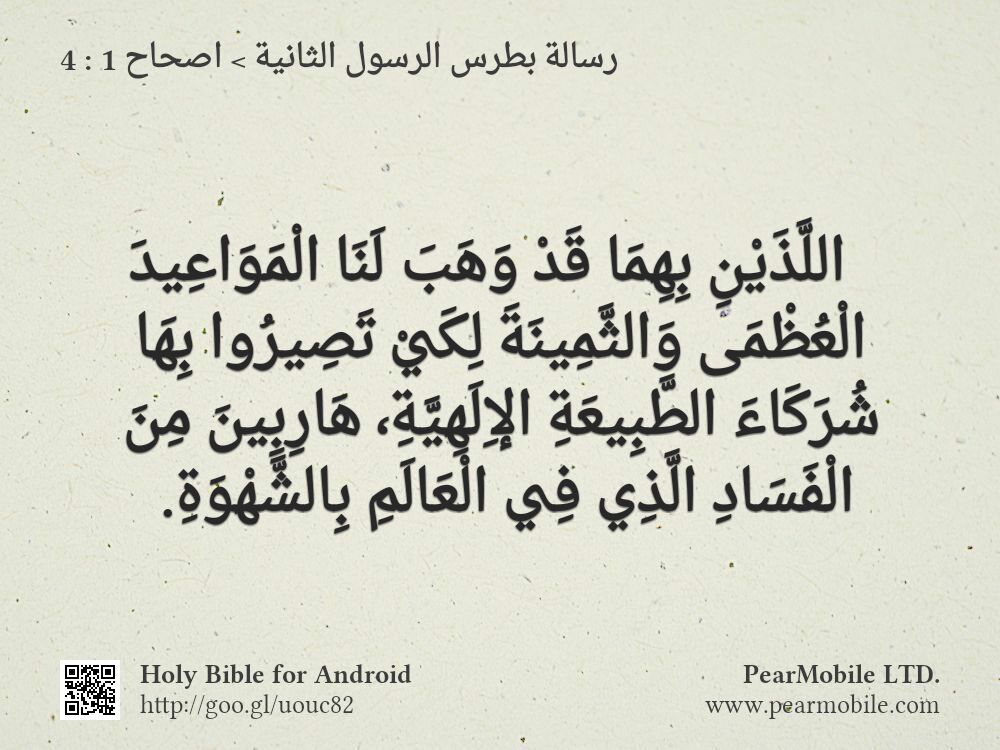 رسالة بطرس الرسول الثانية > اصحاح 1 : 4
اللَّذَيْنِ بِهِمَا قَدْ وَهَبَ لَنَا الْمَوَاعِيدَ
الْعُظْمَى وَالثَّمِينَةَ لِكَيْ تَصِيرُوا بِهَا
شُرَكَاءَ الطَّبِيعَةِ الإِلَهِيَّةِ، هَارِبِينَ مِنَ
الْفَسَادِ الَّذِي فِي الْعَالَمِ بِالشَّهْوَةِ.
Holy Bible for Android
http://goo.gl/uouc82
PearMobile LTD.
www.pearmobile.com